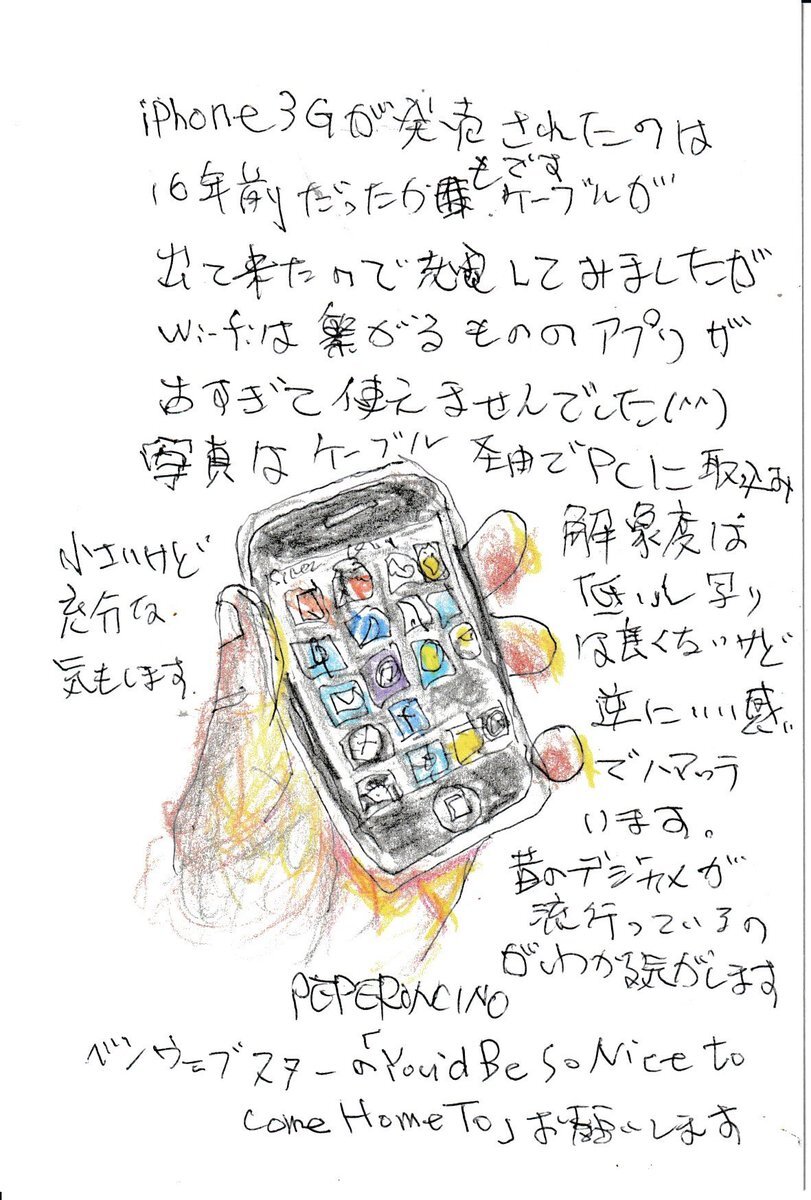 iPhone3Gが発売されたのは
16年前だったかもです ケーブルが
出て来たので充電してみましたが
Wi-fiは繋がるもののアプリが
古すぎて使えませんでした(^^)
写真はケーブル経由でPCに取込み
小さいけど
充分な
気もします
解象度は
低いし写り
は良くないけど
逆にいい感じ
でハマって
います。
昔のデジカメが
流行っているの
がわかる気がします
PEPERONCINO
ベンウェブスターの「You'd Be So Nice to
come Home To」お願いします